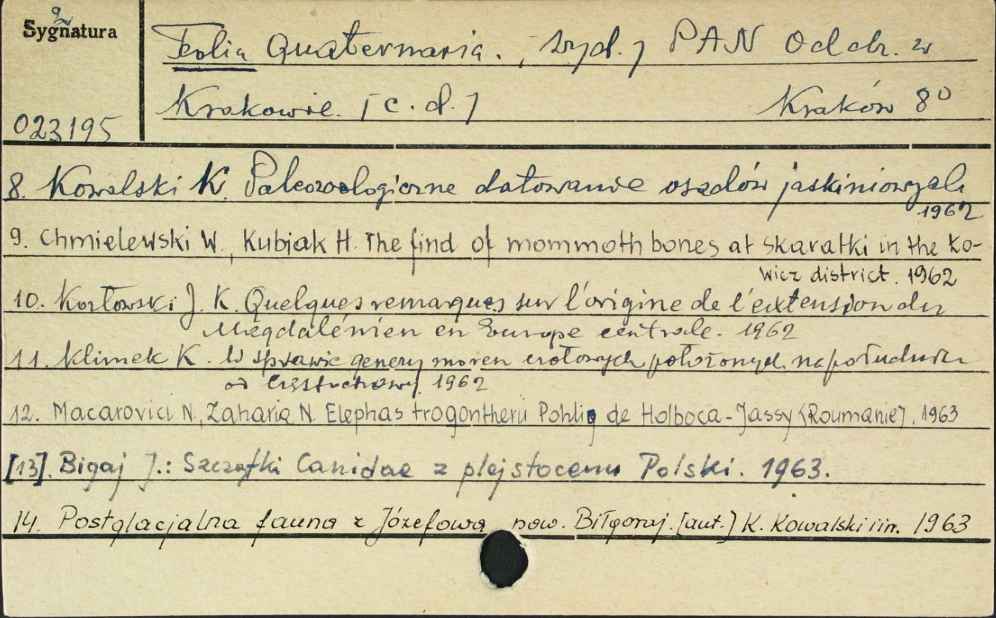 9
Sygnatura
Folia Quaternaria., wyd. J PAN Oddz. w
Krakowie. [c. d.] Kraków 8°
023195
8. Kowalski K. Paleozoologiczne datowanie osadów jaskiniowych
1962
9. Chmielewski W., Kubiak H. The find of mommoth bones at Skaratki in the Ło-
wicz district. 1962
10. Kozłowski J. K. Quelques remarques sur l'origine de l'extension du
Magdalénien en Europe centrale. 1962
11. Klimek K. W sprawie genezy moren czołowych położonych na południe
od Częstochowy. 1962
12. Macarovici N., Zaharia N. Elephas trogontherii Pohlig de Holboca-Jassy (Roumanie). 1963
[13]. Bigaj J.: Szczątki Canidae z plejstocenu Polski. 1963.
14. Postglacjalna fauna z Józefowa pow. Biłgoraj. [aut.] K. Kowalski i in. 1963